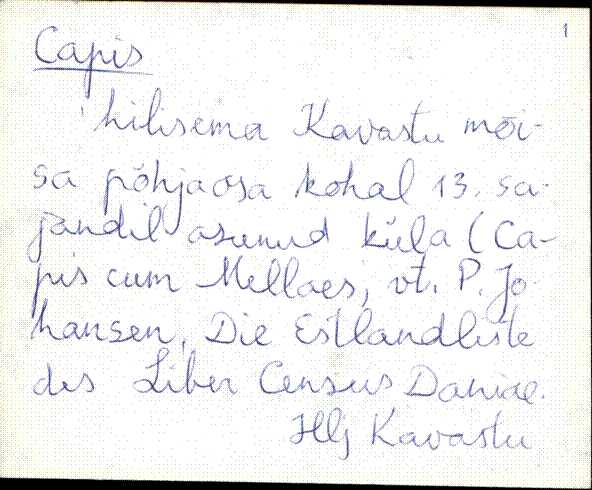 1
Capis
hilisema Kavastu mõi-
sa põhjaosa kohal 13. sa-
jandil asunud küla (Ca-
pis cum Mellaes, vt. P. Jo-
hansen, Die Estlandliste
des Liber Census Daniae.
Hlj Kavastu